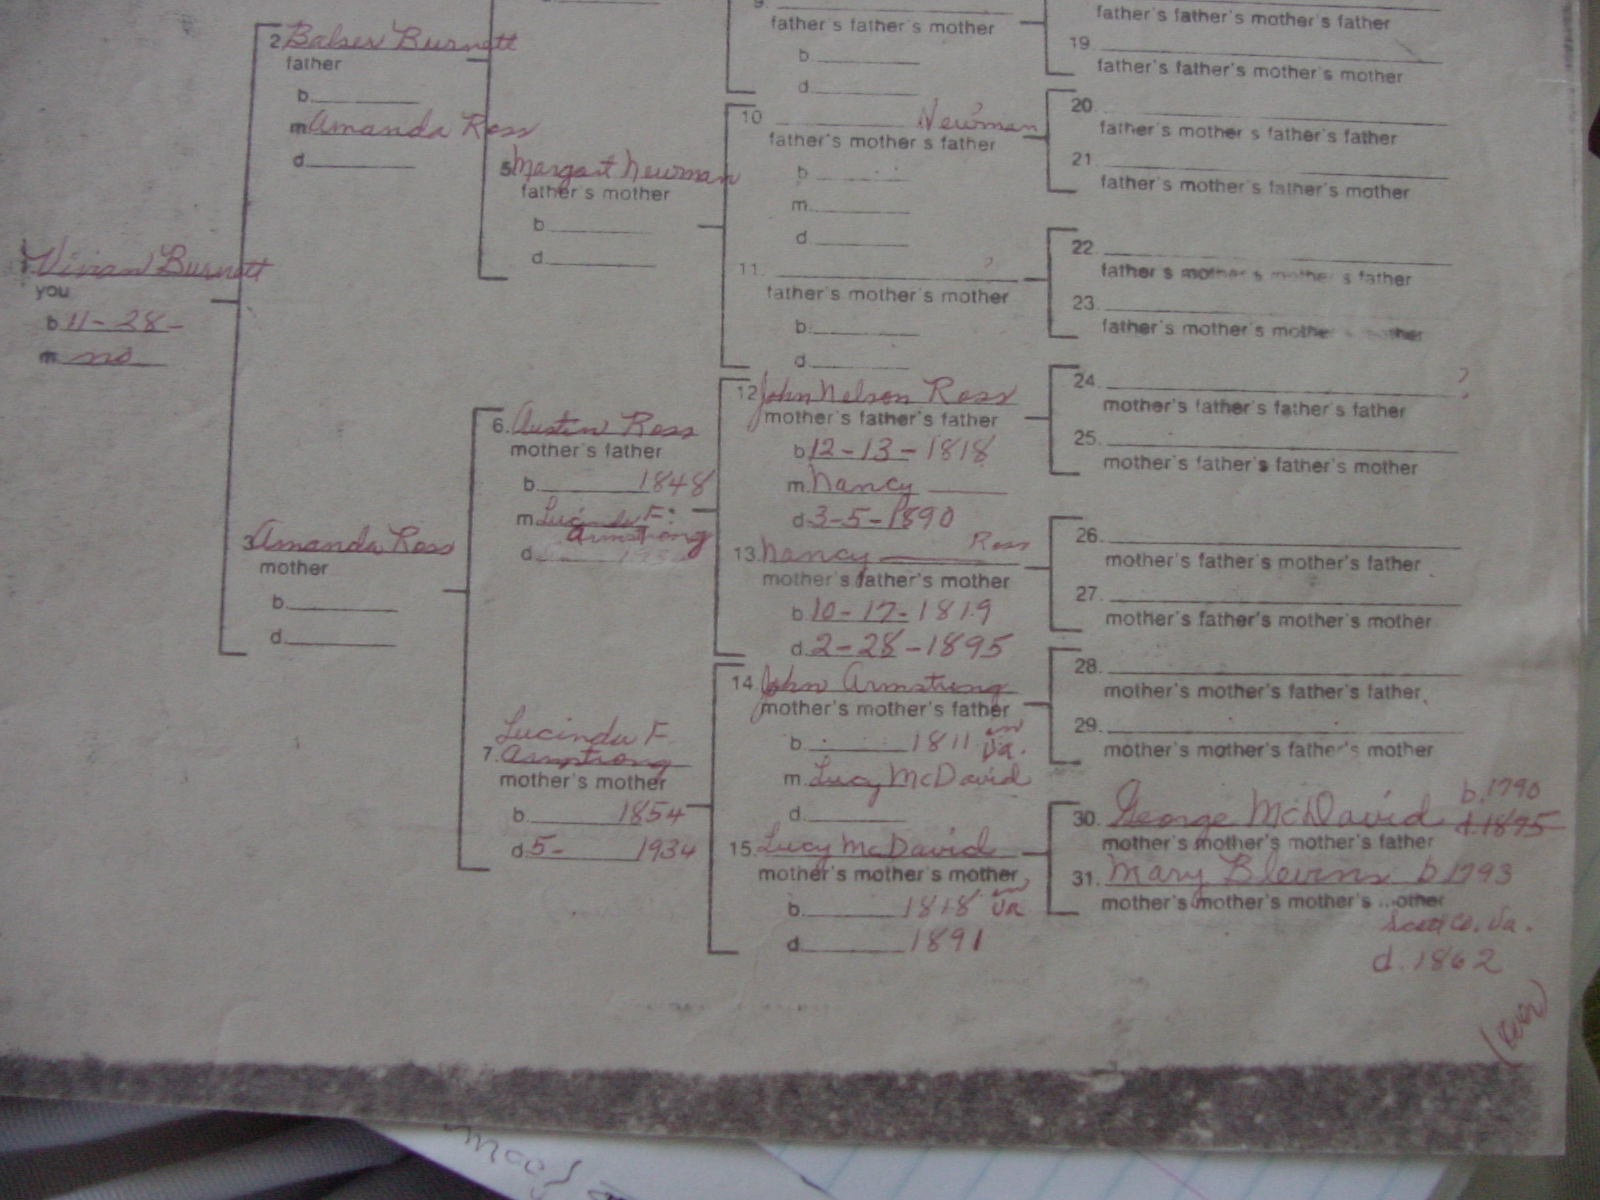 2 Balser Burnett
father
b.
m Amanda Ross
d.
Vivian Burnett
you
b. 11-28-
m no
3. Amanda Ross
mother
b.
d.
5 Margart Newman
father's mother
b.
d.
6. Austin Ross
mother's father
b. 1848
m. Lucinda F.
Armstrong
d.
Lucinda F.
7. Armstrong
mother's mother
b. 1854
d. 5- 1934
9.
father's father's mother
b.
d.
10 Newman
father's mother s father
b
m.
d
11. ?
father's mother's mother
b.
d.
12 John Nelson Ross
mother's father's father
b. 12-13-1818
m. Nancy
d. 3-5-1890
13. Nancy Ross
mother's father's mother
b. 10-17-1819
d. 2-28-1895
14. John Armstrong
mother's mother's father
b. 1811 in Va.
m. Lucy McDavid
d.
15. Lucy McDavid
mother's mother's mother
b. 1818 in Va
d. 1891
father's father's mother's father
19.
father's father's mother's mother
20.
father's mother s father's father
21.
father's mother's father's mother
22.
father s mother s mother s father
23.
father's mother's mother s mother
24. ?
mother's father's father's father
25.
mother's father's father's mother
26.
mother's father's mother's father
27.
mother's father's mother's mother
28.
mother's mother's father's father
29.
mother's mother's father's mother
30. George McDavid b. 1790
d. 1895
mother's mother's mother's father
31. Mary Blevins b 1793
mother's mother's mother's mother
Scott Co. Va.
d. 1862
(over)